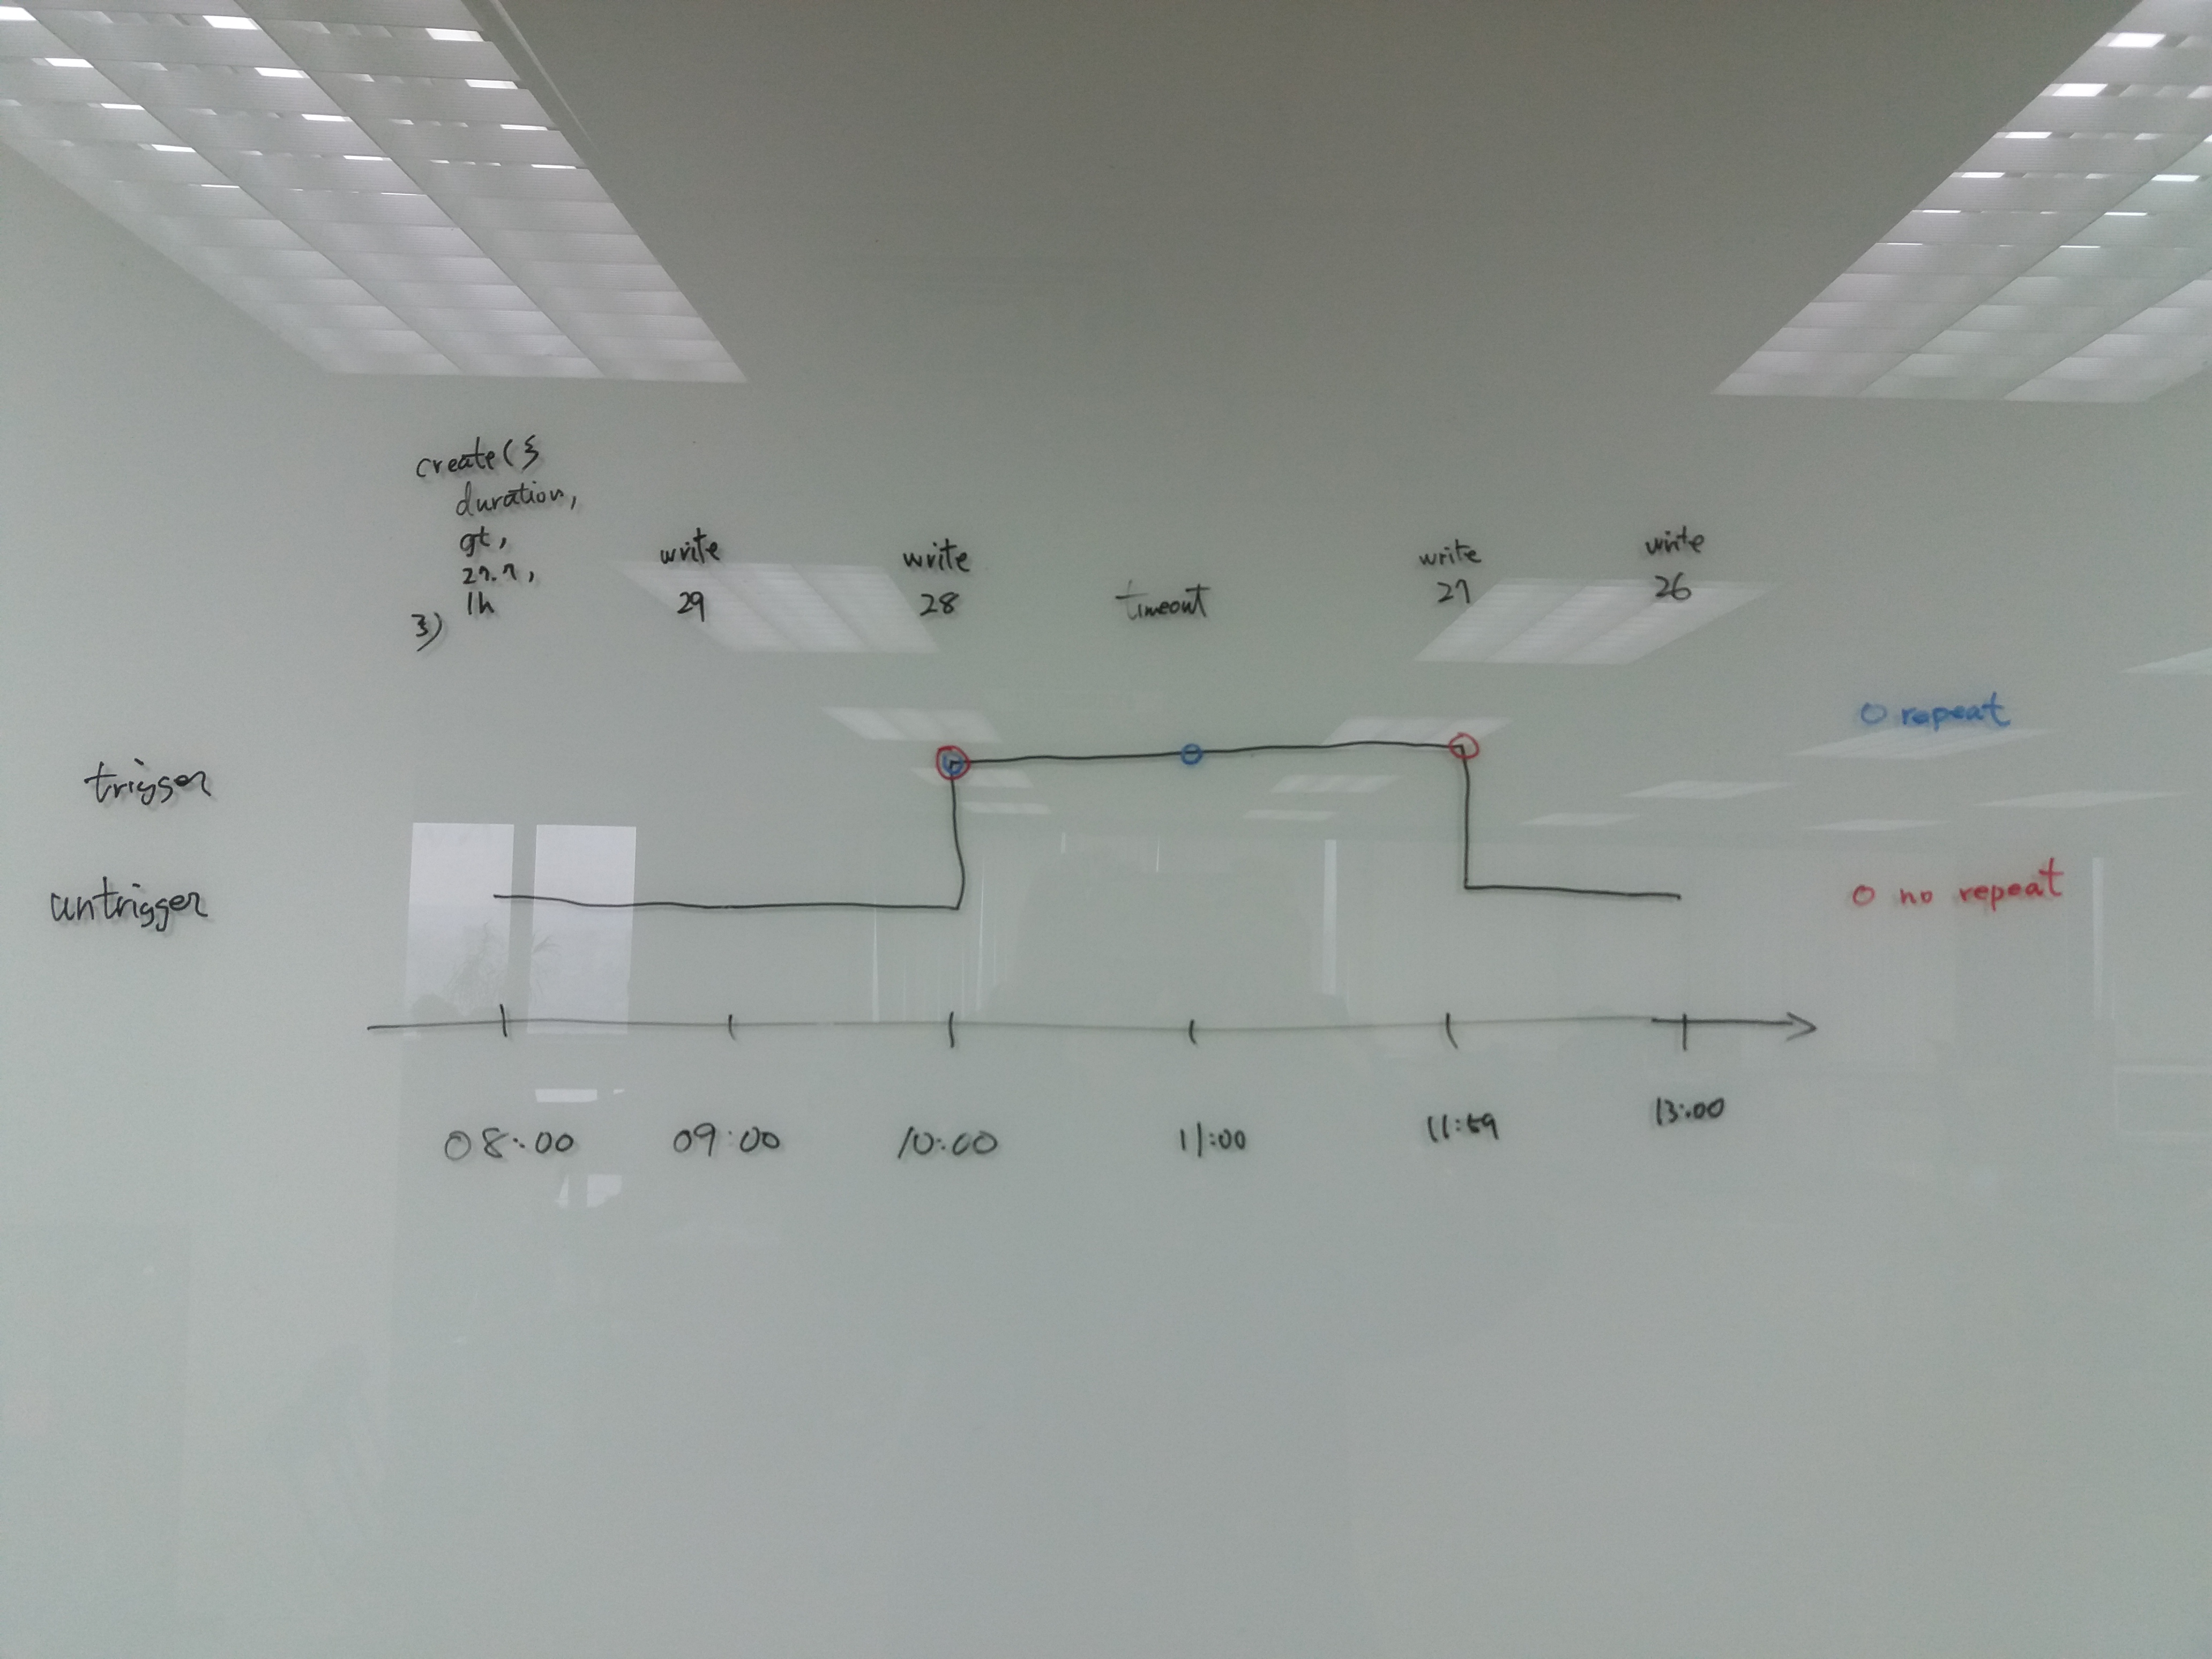 create({
duration,
gt,
27.7,
1h
})
write
29
write
28
timeout
write
27
write
26
o repeat
trigger
untrigger
o no repeat
08:00 09:00 10:00 11:00 11:59 13:00